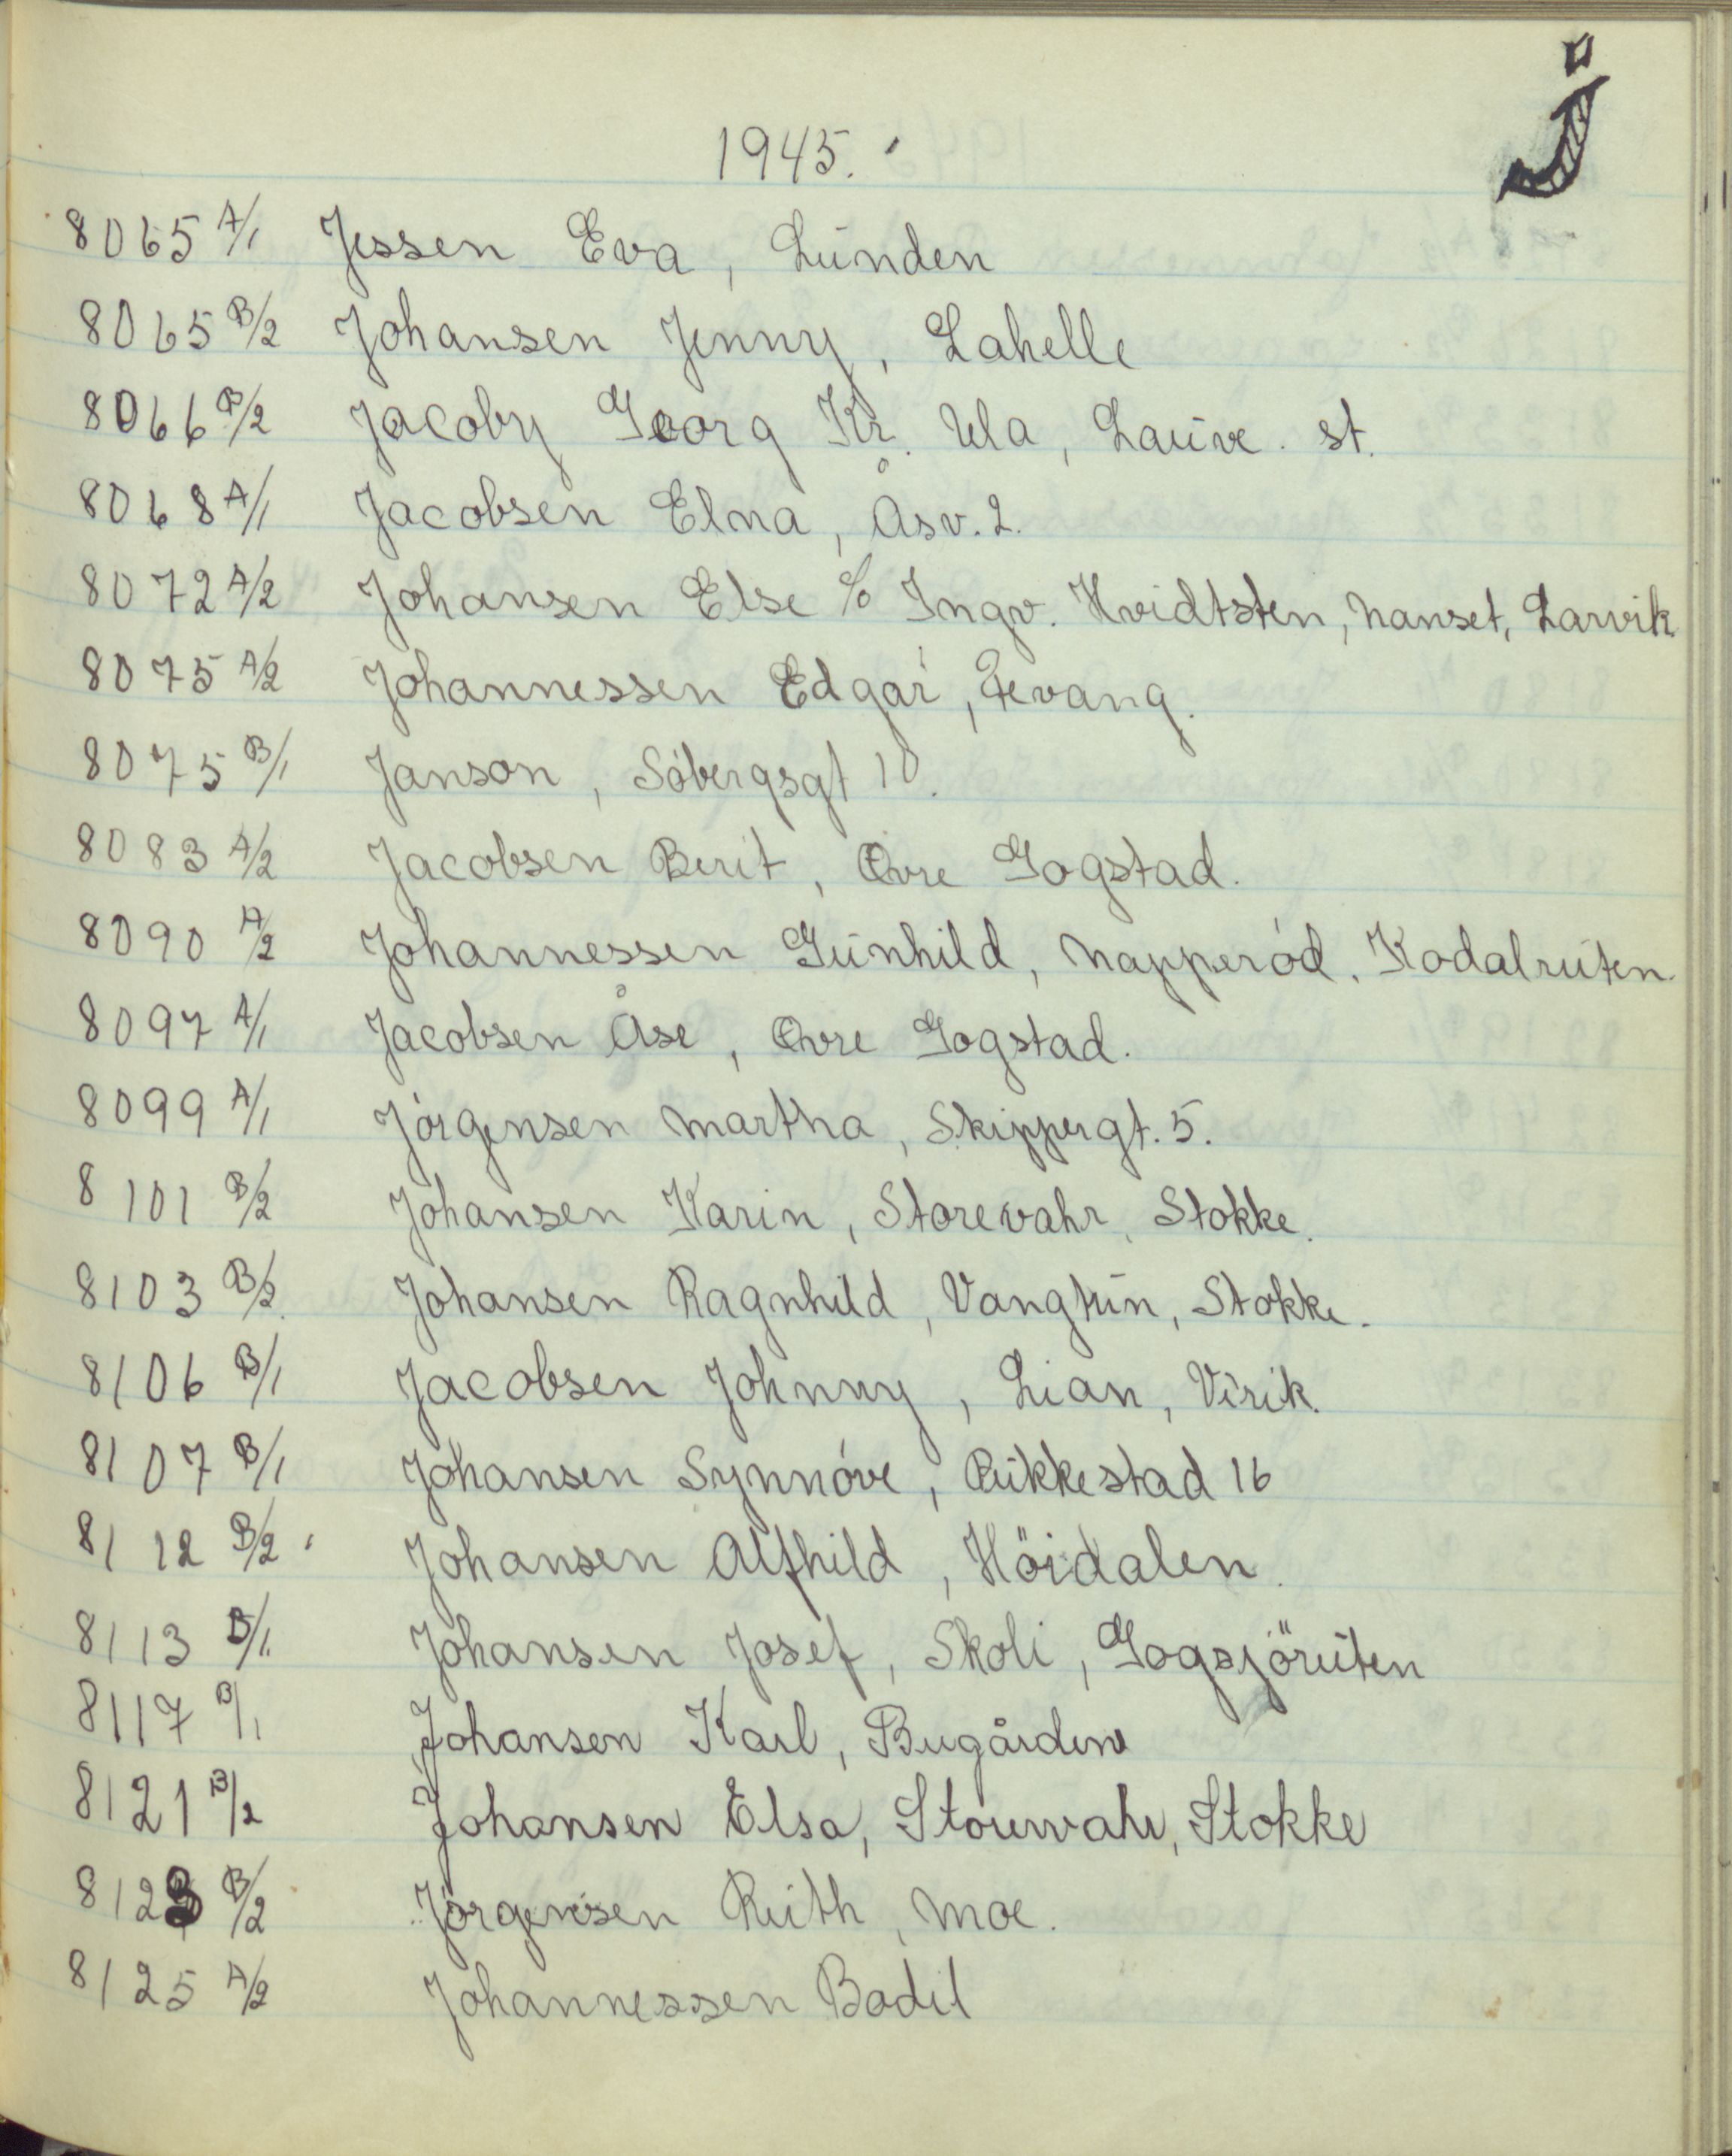 J
1945.
8065 A/1 Jessen Eva, Lunden
8065 B/2 Johansen Jenny, Lahelle
8066 B/2 Jacoby Georg Kr. Ula, Lauve. st.
8068 A/1 Jacobsen Elna, Åsv. 2.
8072 A/2 Johansen Else c/o Ingv. Hvidtsten, Nanset, Larvik
8075 A/2 Johannessen Edgar, Fevang.
8075 B/1 Janson, Sóbergsgt 10.
8083 A/2 Jacobsen Berit, Øvre Gogstad.
8090 A/2 Johannessen Gunhild, Napperód, Kodalruten.
8097 A/1 Jacobsen Åse, Øvre Gogstad.
8099 A/1 Jórgensen Martha, Skippergt. 5.
8101 B/2 Johansen Karin, Storevahr, Stokke.
8103 B/2 Johansen Ragnhild, Vangtun, Stokke.
8106 B/1 Jacobsen Johnny, Lian, Virik.
8107 B/1 Johansen Synnóve, Rukkestad 16
8112 B/2 Johansen Alfhild, Höidalen.
8113 B/1 Johansen Josef, Skoli, Gogsjöruten
8117 B/1 Johansen Karl, Bugården
8121 B/2 Johansen Elsa, Storevahr, Stokke
8123 B/2 Jörgensen Ruth, Moe.
8125 A/2 Johannessen Bodil